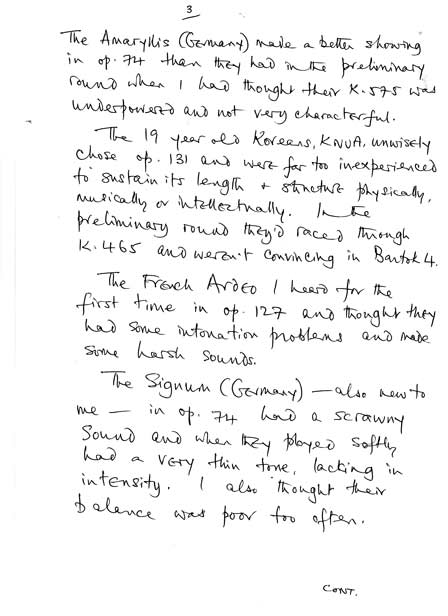 3
The Amaryllis (Germany) made a better showing
in op. 74 than they had in the preliminary
round when I had thought their K.575 was
underpowered and not very characterful.
The 19 year old Koreans, KNUA, unwisely
chose op. 131 and were far too inexperienced
to sustain its length + structure physically,
musically or intellectually. In the
preliminary round they'd raced through
K.465 and weren't convincing in Bartok 4.
The French Ardeo I heard for the
first time in op. 127 and thought they
had some intonation problems and made
some harsh sounds.
The Signum (Germany) — also new to
me — in op. 74 had a scrawny
sound and when they played softly
had a very thin tone, lacking in
intensity. I also thought their
balance was poor too often.
CONT.